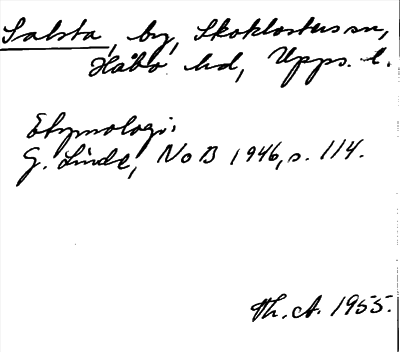 Salsta, by, Skoklosters sn,
Håbo hd, Upps. l.
Etymologi.
G. Linde, NoB 1946, s. 114.
Th. A. 1955.